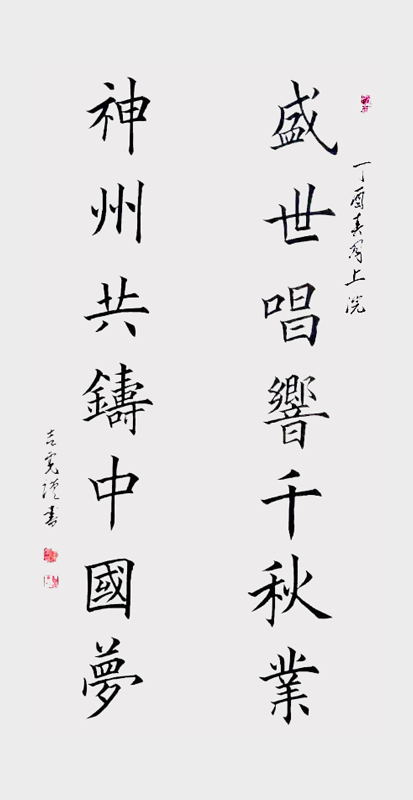 丁酉春月上浣
盛世唱響千秋業
神州共鑄中國夢
書